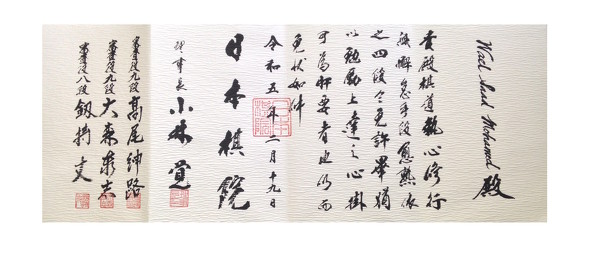 Wael Saad Mohamed 殿
貴殿棋道執心修行
無懈怠手段愈熟依
之四段令免許畢猶
以勉励上達之心掛
可為肝要者也仍而
免状如件
令和五年二月十九日
日本棋院
理事長 小林覚
審査役九段 髙尾紳路
審査役九段 大森泰志
審査役八段 剱持丈